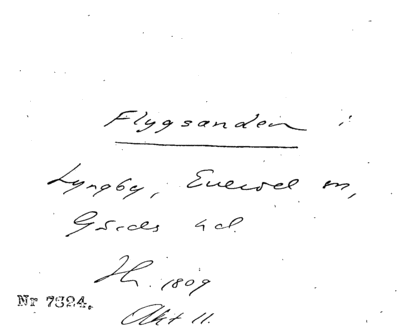 Flygsanden i
Lyngby, Everöd m,
Gärds hd.
Hr. 1809
Nr 7324.
Akt 11.